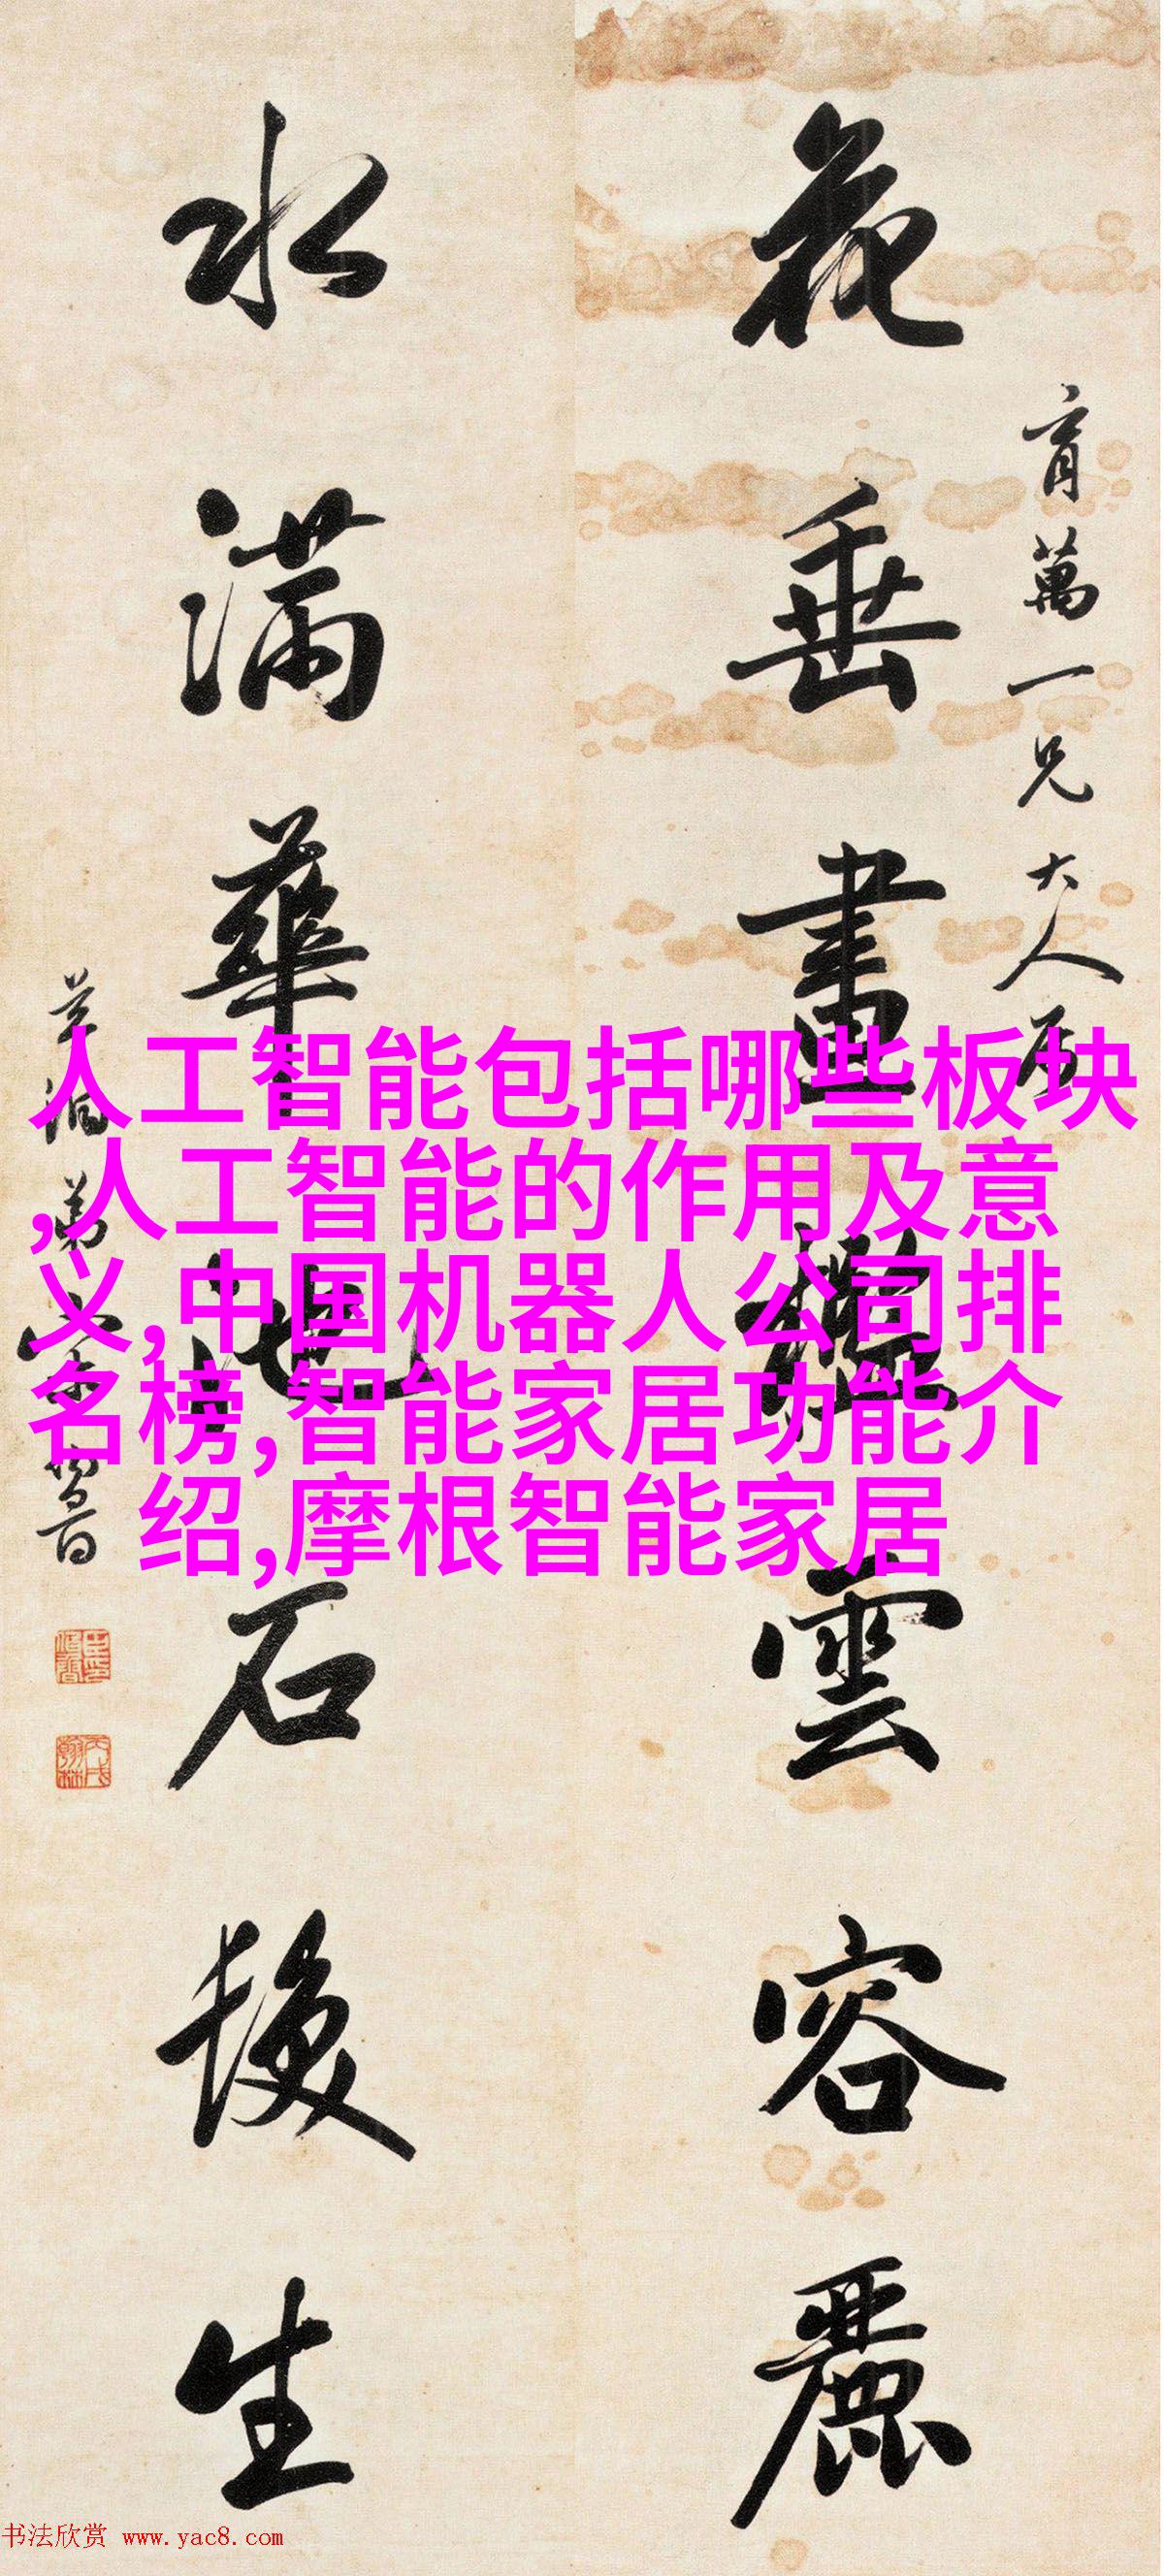 花垂畫檻雲容麗
育萬一兄大人屬
水满華池石髮生
人工智能包括哪些板块
,人工智能的作用及意
义,中国机器人公司排
名榜,智能家居功能介
绍,摩根智能家居
书法欣赏 www.yac8.com